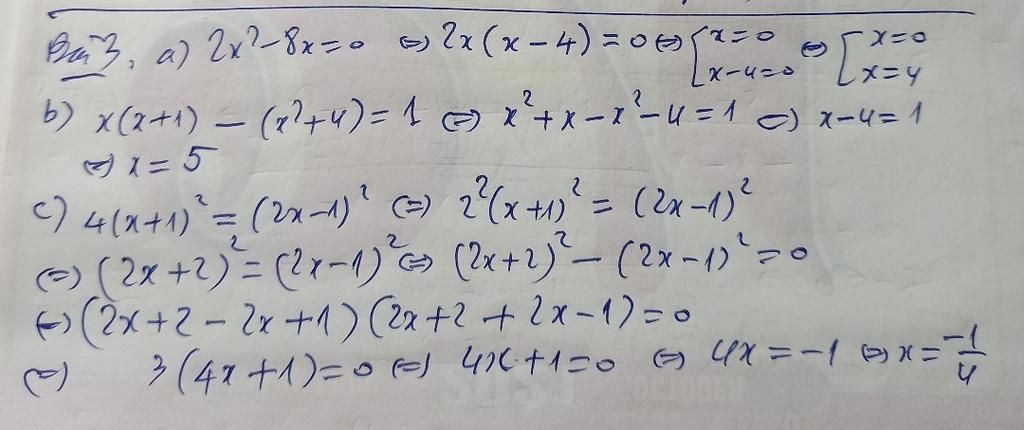 Bài 3, a) 2x² - 8x = 0 ⇔ 2x(x - 4) = 0 ⇔ [x = 0 x - 4 = 0 ⇔ [x = 0 x = 4
b) x(x+1) - (x²+4) = 1 ⇔ x² + x - x² - 4 = 1 ⇔ x - 4 = 1
⇔ x = 5
c) 4(x+1)² = (2x-1)² ⇔ 2²(x+1)² = (2x-1)²
⇔ (2x+2)² = (2x-1)² ⇔ (2x+2)² - (2x-1)² = 0
⇔ (2x+2 - 2x+1)(2x+2 + 2x-1) = 0
⇔ 3(4x+1) = 0 ⇔ 4x+1 = 0 ⇔ 4x = -1 ⇔ x = -1/4